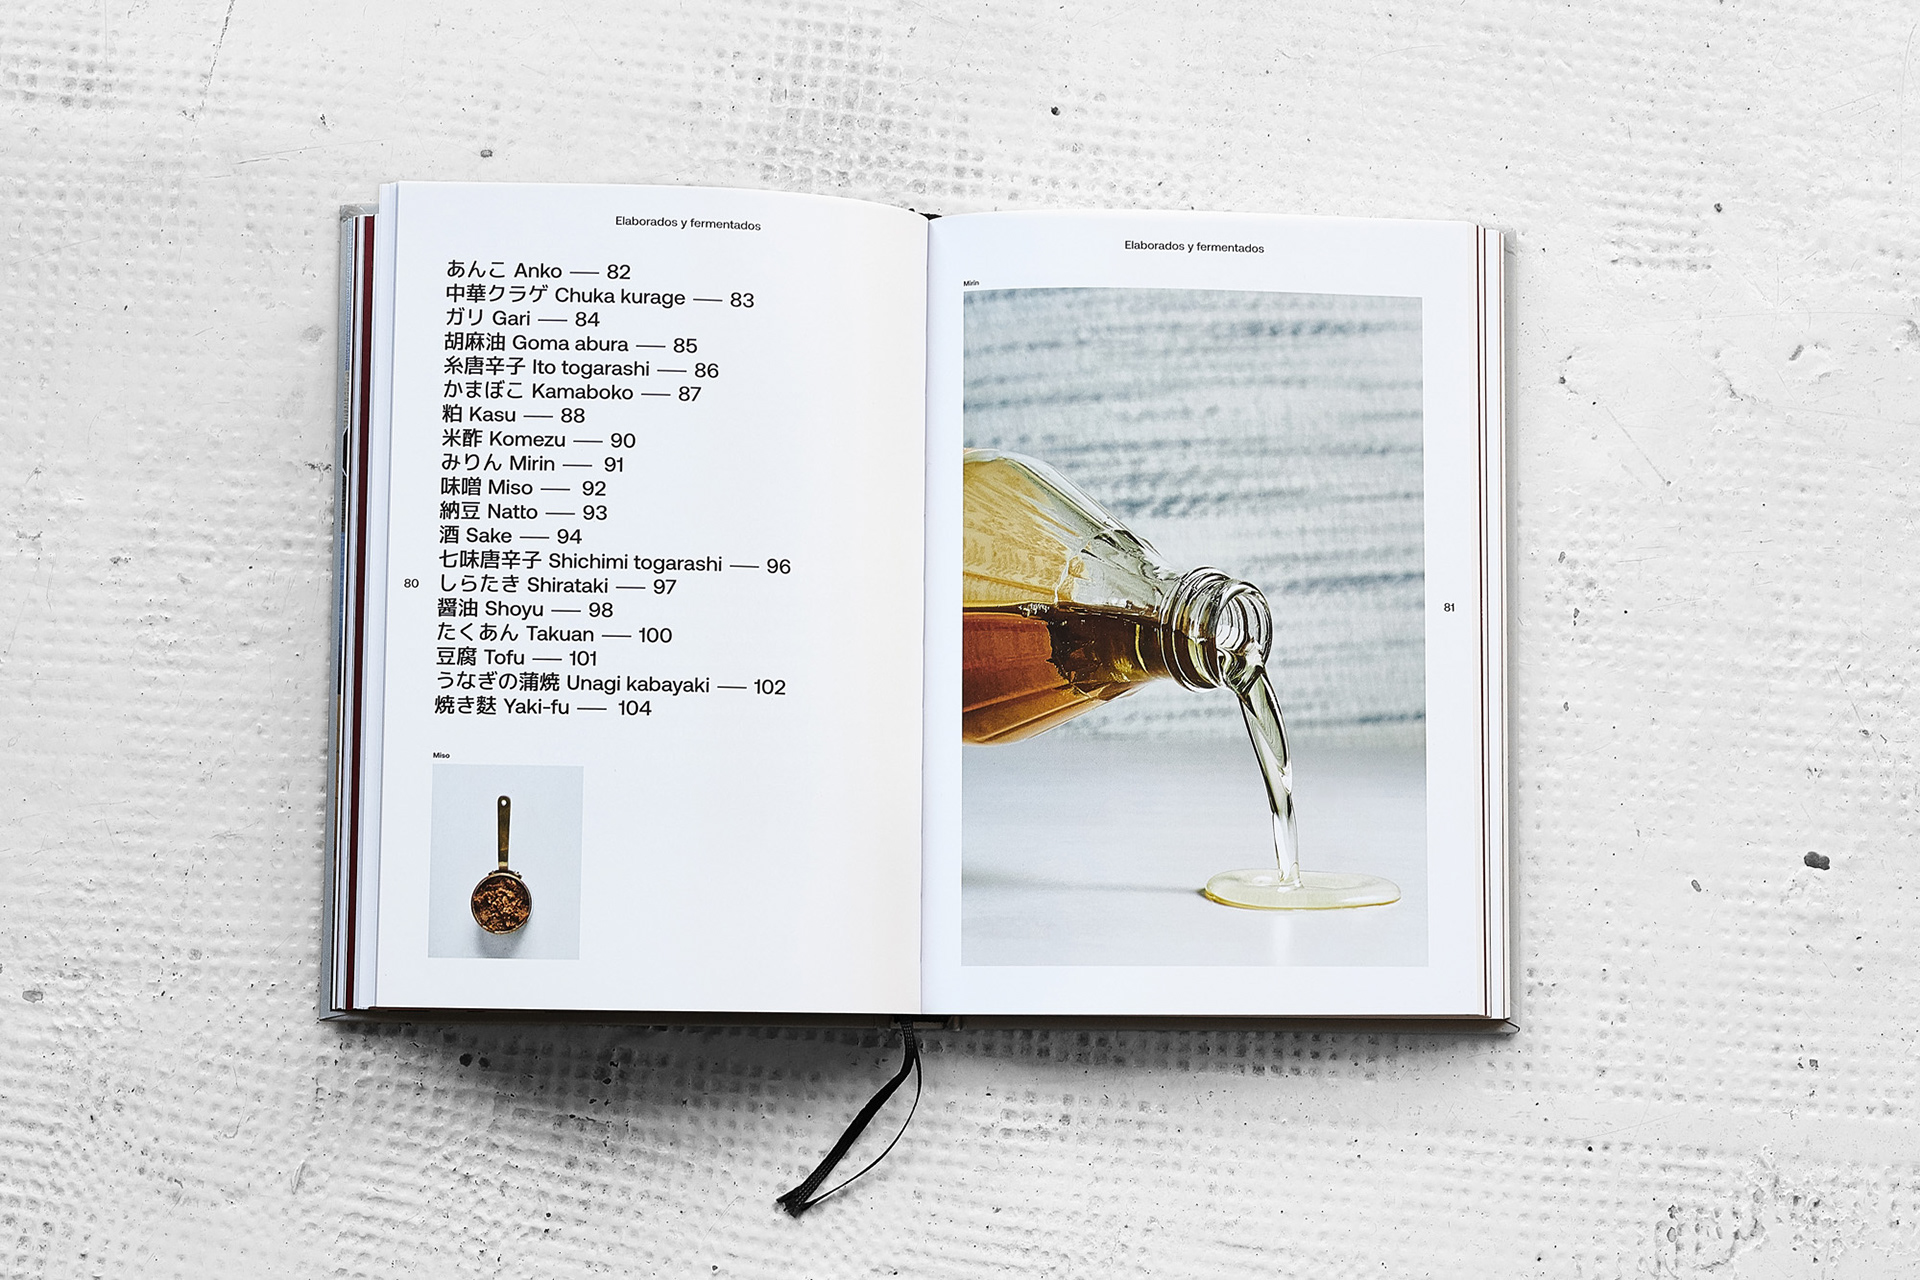 Elaborados y fermentados
あんこ Anko — 82
中華クラゲ Chuka kurage — 83
ガリ Gari — 84
胡麻油 Goma abura — 85
糸唐辛子 Ito togarashi — 86
かまぼこ Kamaboko — 87
粕 Kasu — 88
米酢 Komezu — 90
みりん Mirin — 91
味噌 Miso — 92
納豆 Natto — 93
酒 Sake — 94
七味唐辛子 Shichimi togarashi — 96
しらたき Shirataki — 97
醤油 Shoyu — 98
たくあん Takuan — 100
豆腐 Tofu — 101
うなぎの蒲焼 Unagi kabayaki — 102
焼き麩 Yaki-fu — 104
80
Miso
Elaborados y fermentados
Mirin
81